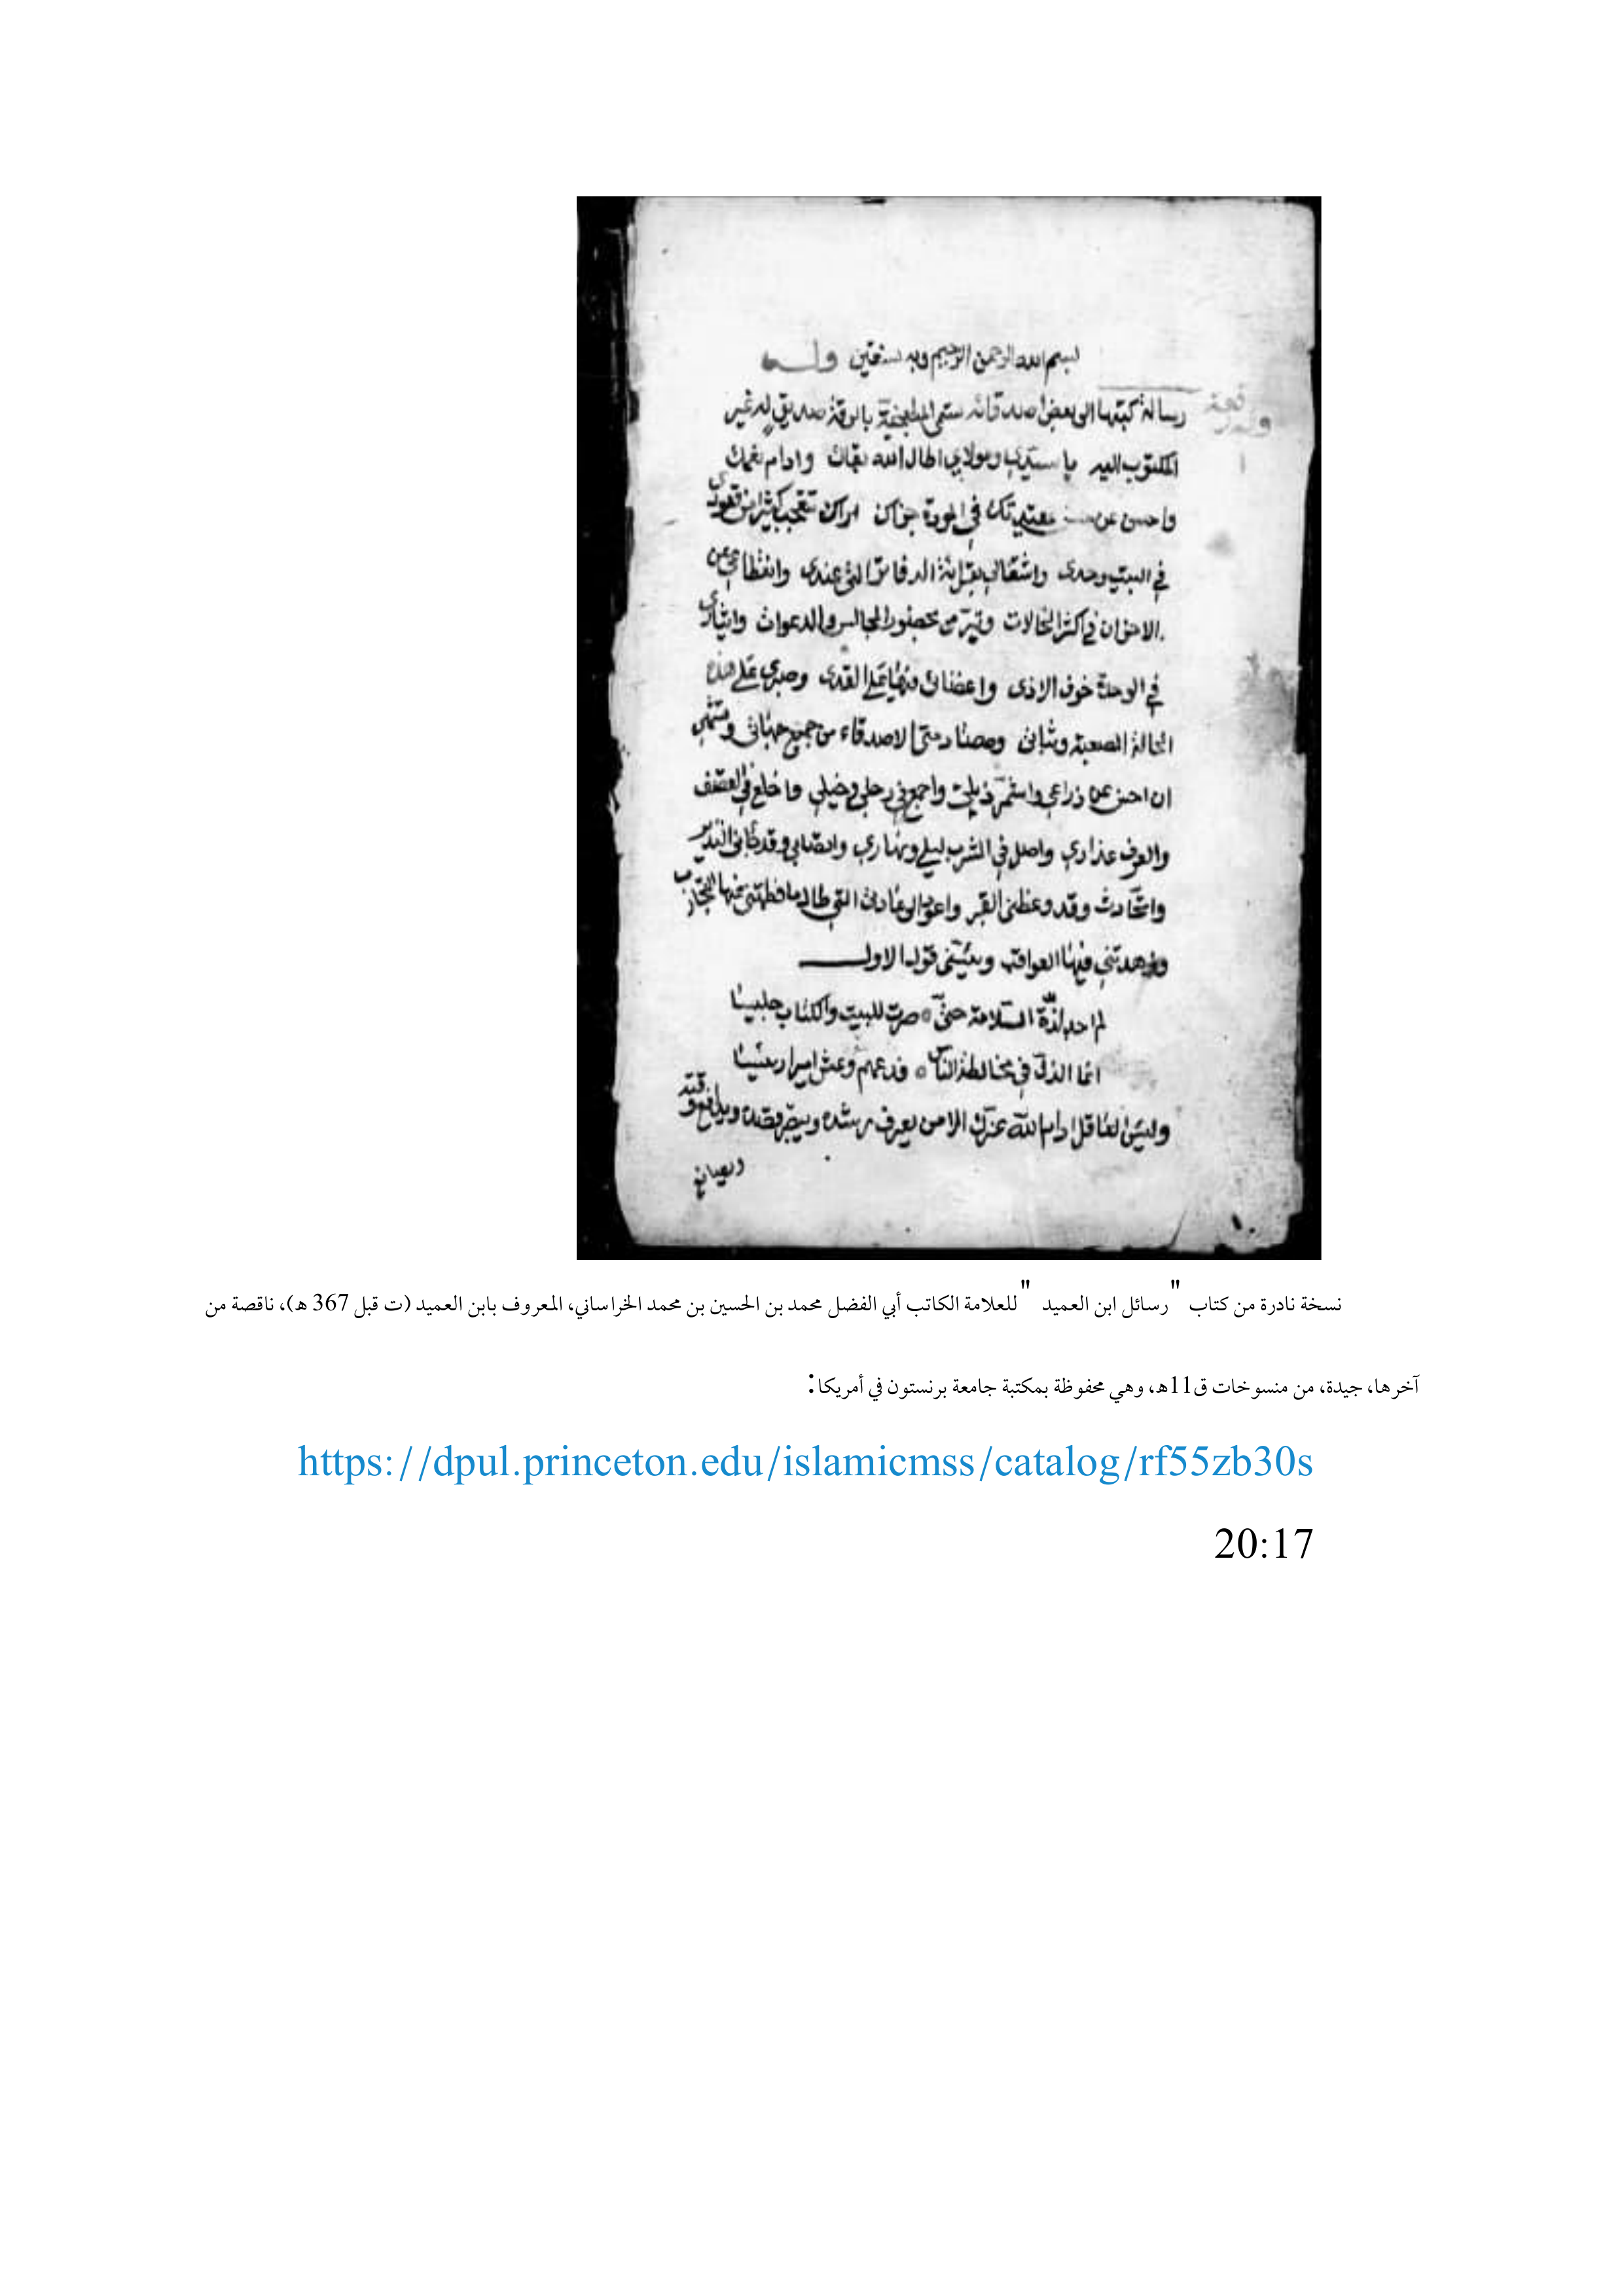 بسم الله الرحمن الرحيم وبه نستعين وله
رسالة كتبها الى بعض اصدقائه صديق له غير
المكتوب اليه يا سيدي ومولاي اطال الله بقاك وادام نعمك
واحسن عن في المودة جزاك اراك تتعجب كثيرا من قعودي
في البيت وحدى واشتغالي بقراءة الدفاتر التي عندى وانقطاعي عن
الاخوان في اكثر الحالات من حضور المجالس والدعوات وايثاري
في الوحدة خوف الاذى على القدى وصبري على هذه
الحالة الصعبة الاصدقاء من جميع جهاتي
ان احسر عن ذراعي واشمر ذيلي رجلي وخيلي واخلع في القصف
والعزف عذاري واصل في الشرب ليلي ونهاري وقد النذير
وقد وعظني واعود الى عادتي التي طال ما فطمتني عنها التجارب
وزهدتني فيها العواقب قول الاول
لم اجد لذة السلامة حتى صرت للبيت والكتاب جليسا
انما الذل في مخالطة الناس فدعهم وعش اميرا رئيسا
وليس العاقل ادام الله عزك الا من يعرف رشده ويبصر قصده
نسخة نادرة من كتاب "رسائل ابن العميد "للعلامة الكاتب أبي الفضل محمد بن الحسين بن محمد الخراساني، المعروف بابن العميد (ت قبل 367 هـ)، ناقصة من
آخرها، جيدة، من منسوخات ق11هـ، وهي محفوظة بمكتبة جامعة برنستون في أمريكا:
https://dpul.princeton.edu/islamicmss/catalog/rf55zb30s
20:17